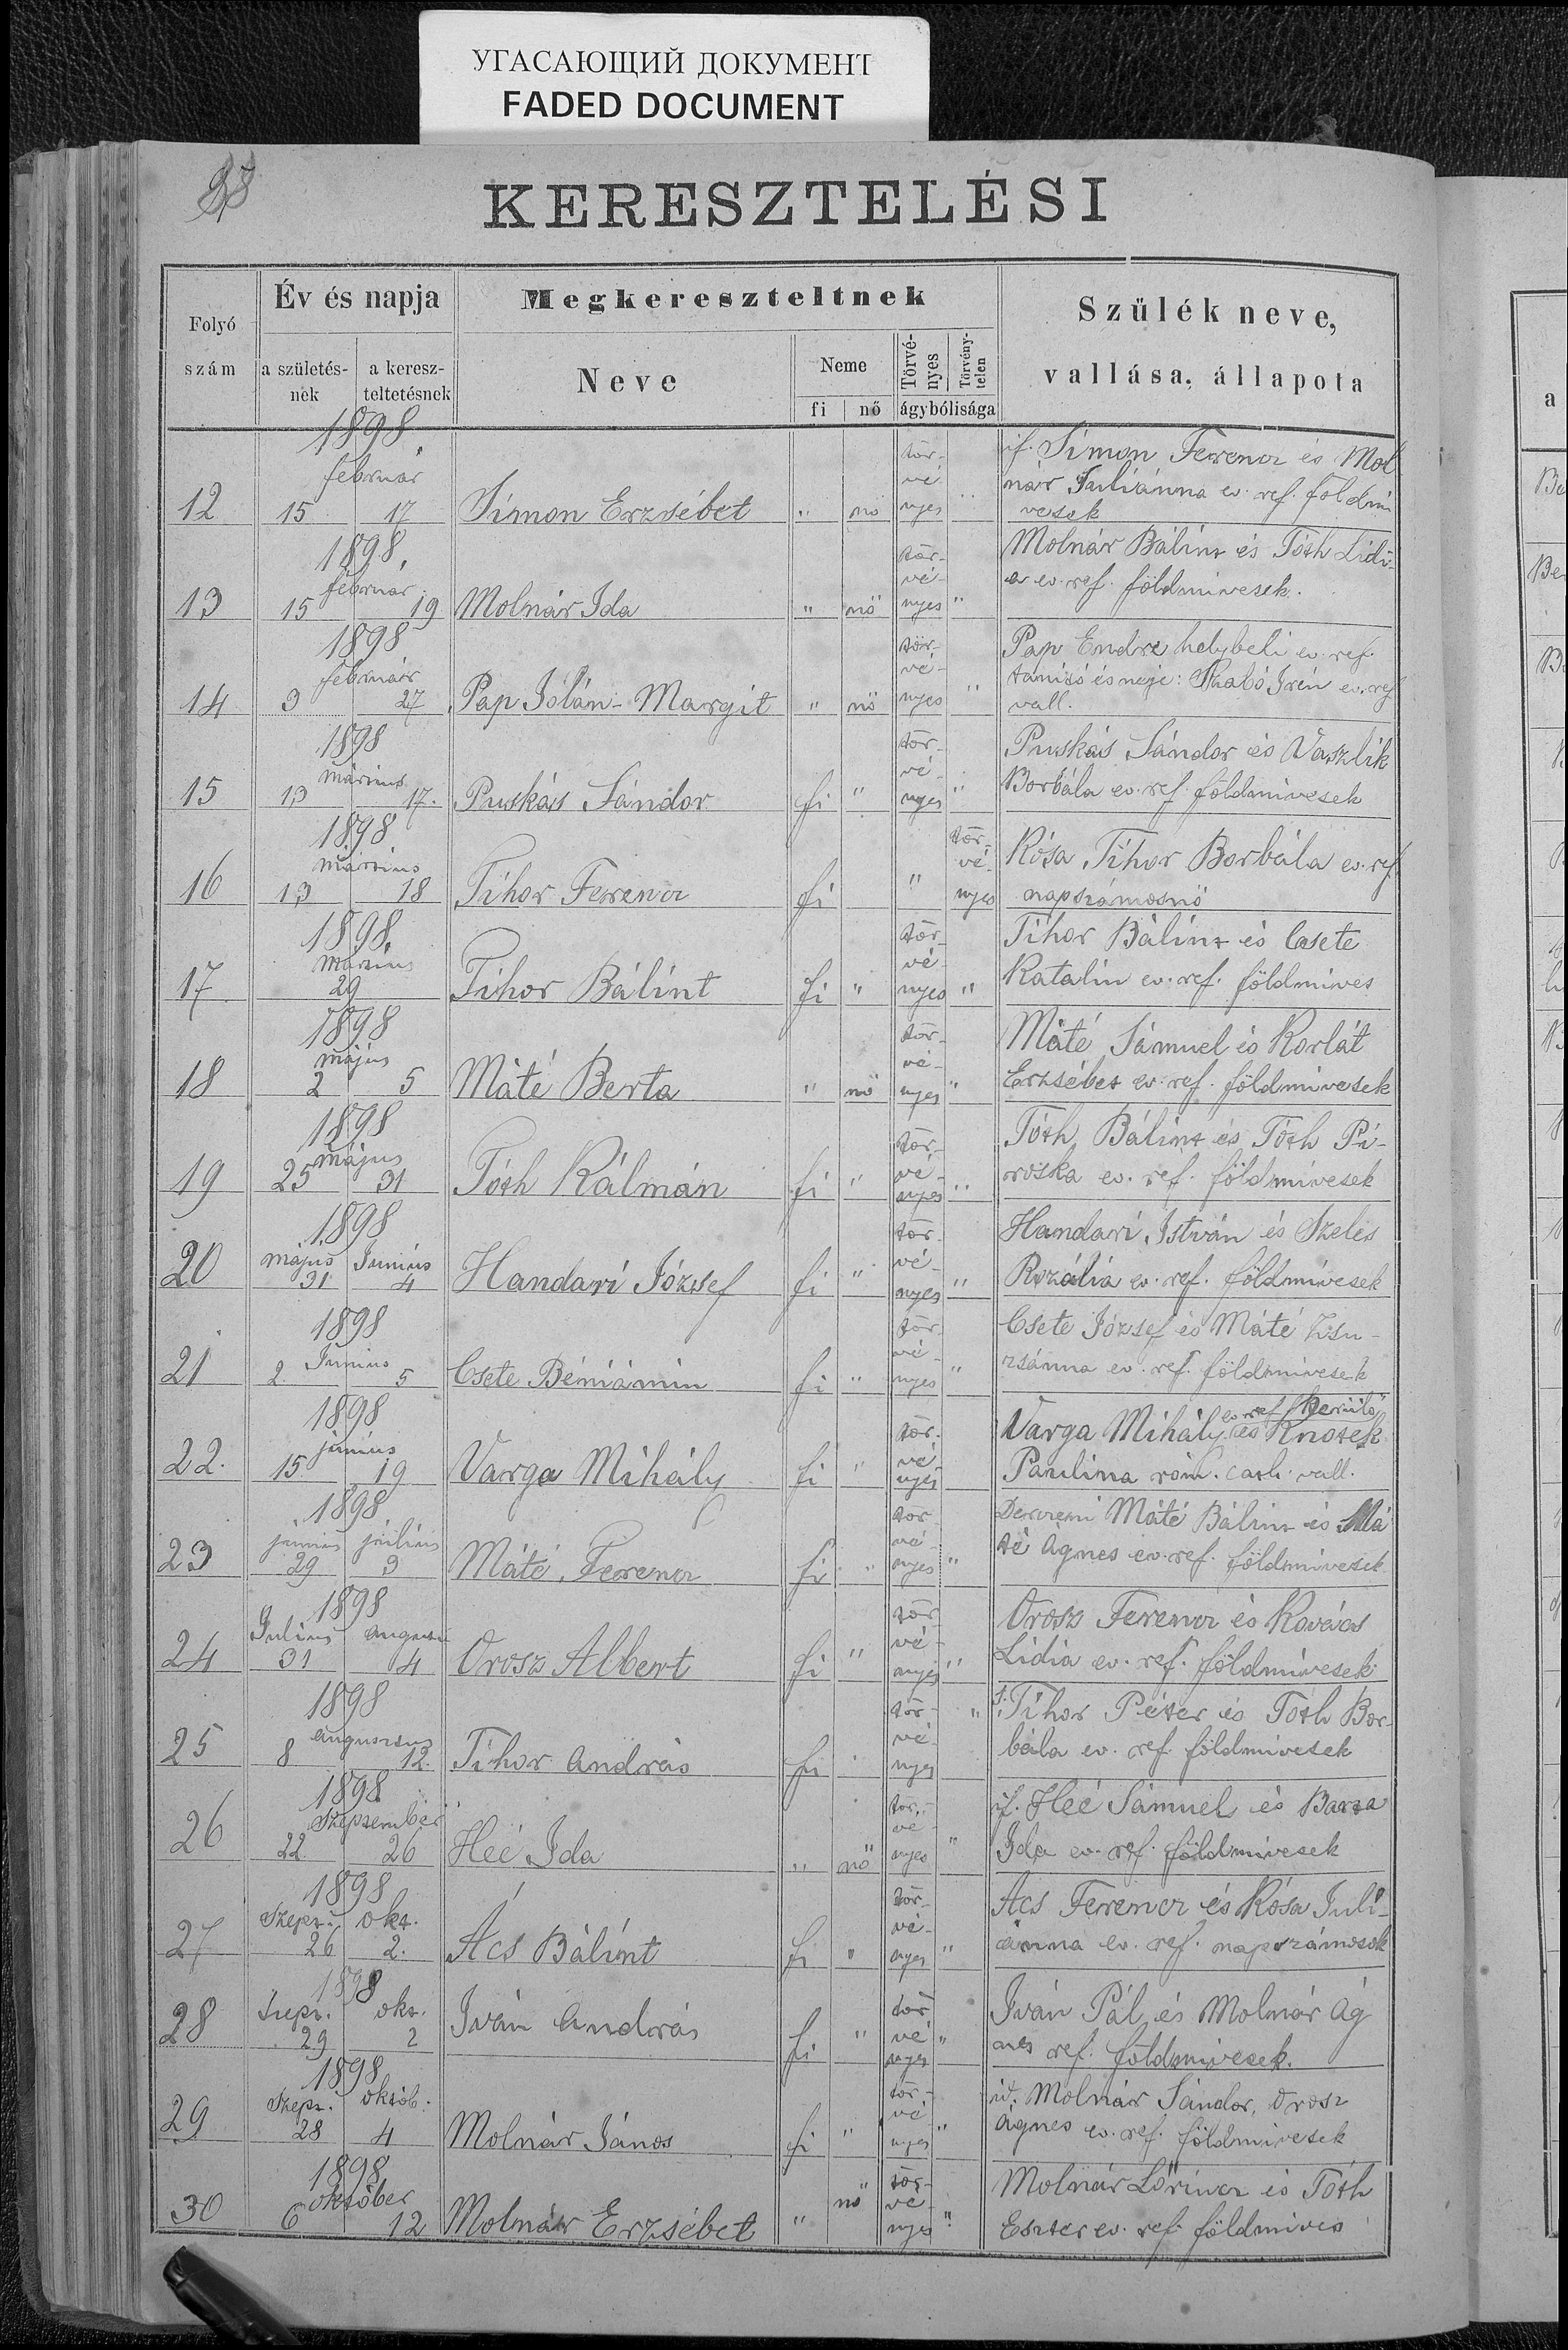 УГАСАЮЩИЙ ДОКУМЕНТ
FADED DOCUMENT
KERESZTELÉSI
Folyó szám
Év és napja
a születés-
nek
a keresz-
teltetésnek
Megkereszteltnek
Neve
Neme
fi nő
Törvé-
nyes
Törvény-
telen
ágybólisága
Szülék neve,
vallása, állapota
1898.
február
12 15 17 Simon Erzsébet " nő tör-
vé
nyes "
if. Simon Ferencz és Mol
nár Juliánna ev. ref. földmi
vesek
1898.
február
13 15 19 Molnár Ida " nő tör-
vé-
nyes "
Molnár Bálint és Tóth Lidi-
a ev. ref. földmivesek.
1898
február
14 3 27 Pap Jolán-Margit " nő tör-
vé-
nyes "
Pap Endre helybeli ev. ref.
tanitó és neje: Irén ev. ref
vall.
1898
március
15 13 17. Puskás Sándor fi " tör-
vé-
nyes "
Puskás Sándor és Vaszlik
Borbála ev. ref. földmivesek
1898
március
16 13 18 Tihor Ferencz fi " tör-
vé-
nyes
Rósa Tihor Borbála ev. ref.
napszámosnő
1898.
március
17 29 Tihor Bálint fi " tör-
vé-
nyes "
Tihor Bálint és Csete
Katalin ev. ref. földmives
1898
május
18 2 5 Máté Berta " nő tör-
vé-
nyes "
Máté Sámuel és Korlát
Erzsébet ev. ref. földmivesek
1898
május
19 25 31 Tóth Kálmán fi " tör-
vé-
nyes "
Tóth Bálint és Tóth Pi-
roska ev. ref. földmivesek
1898
május Junius
20 31 4 Handari József fi " tör-
vé-
nyes "
Handari István és Szeles
Rozália ev. ref. földmivesek
1898
Junius
21 2 5 Csete Béniámin fi " tör-
vé-
nyes "
Csete József és Máté Zsu-
zsánna ev. ref. földmivesek
1898
június
22. 15 19 Varga Mihály fi " tör-
vé
nyes
ev. ref. kerülő
Varga Mihály és Knotek
Paulina róm. cath. vall.
1898
június július
23 29 3 Máté Ferencz fi " tör-
vé-
nyes "
Máté Bálint és Má
té Ágnes ev. ref. földmivesek
1898
Julius
24 31 4 Orosz Albert fi " tör-
vé-
nyes "
Orosz Ferencz és Kovács
Lidia ev. ref. földmivesek
1898
augusztus
25 8 12. Tihor András fi " tör- "
vé-
nyes
Tihor Péter és Tóth Bor-
bála ev. ref. földmivesek
1898
Szeptember
26 22 26 Heé Ida " nő tör-
vé-
nyes "
if. Heé Sámuel és Barta
Ida ev. ref. földmivesek
1898
Szept. okt.
27 26 2. Ács Bálint fi " tör-
vé-
nyes "
Acs Ferencz és Kósa Juli-
ánna ev. ref. napszámosok
1898
Szept. okt.
28 29 2 Iván András fi " tör
vé "
nyes
Iván Pál és Molnár Ág
nes ref. földmivesek.
1898
Szept. októb.
29 28 4 Molnár János fi " tör-
vé
nyes "
id. Molnár Sándor, Orosz
Ágnes ev. ref. földmivesek
1898
október
30 6 12 Molnár Erzsébet " nő tör-
vé-
nyes "
Molnár Lőrincz és Tóth
Eszter ev. ref. földmives
a